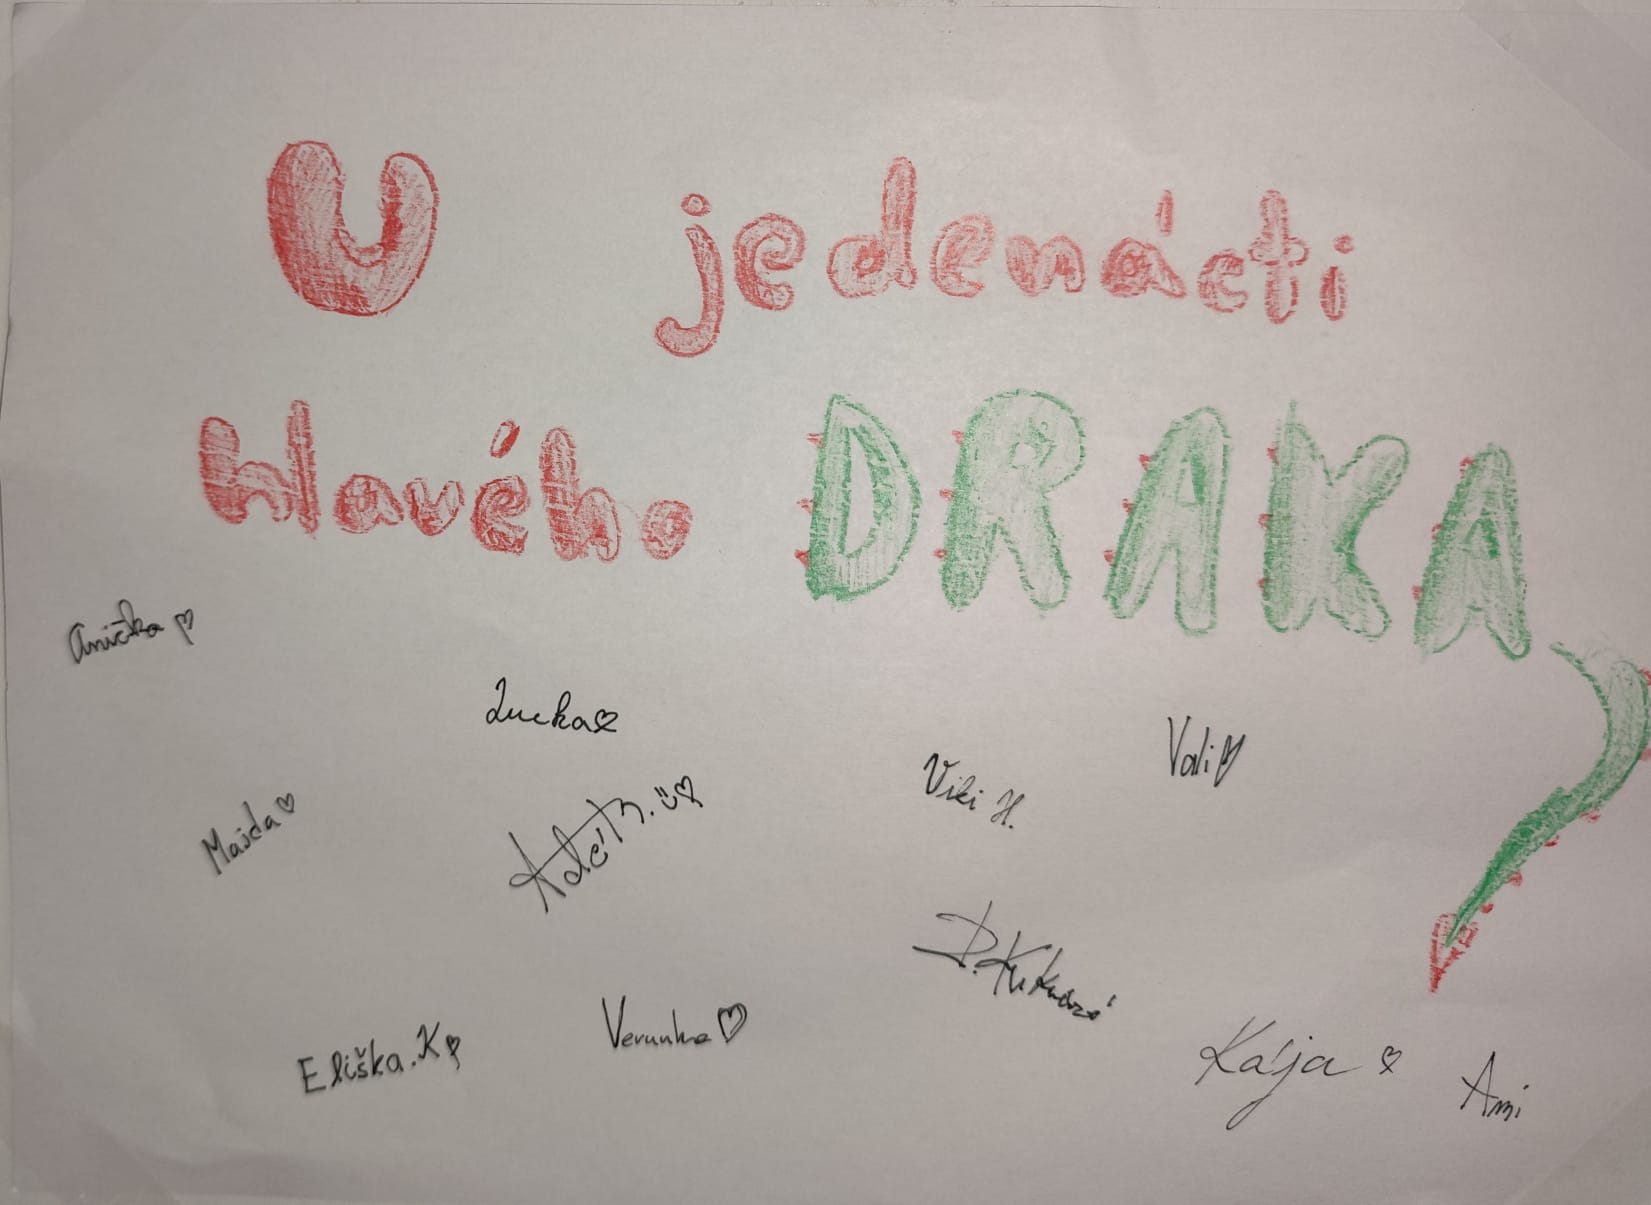 U jedenácti
hlavého DRAKA
Anička
Lucka
Vali
Viki H.
Majda
Verunka
Eliška.K
Kája
Ami